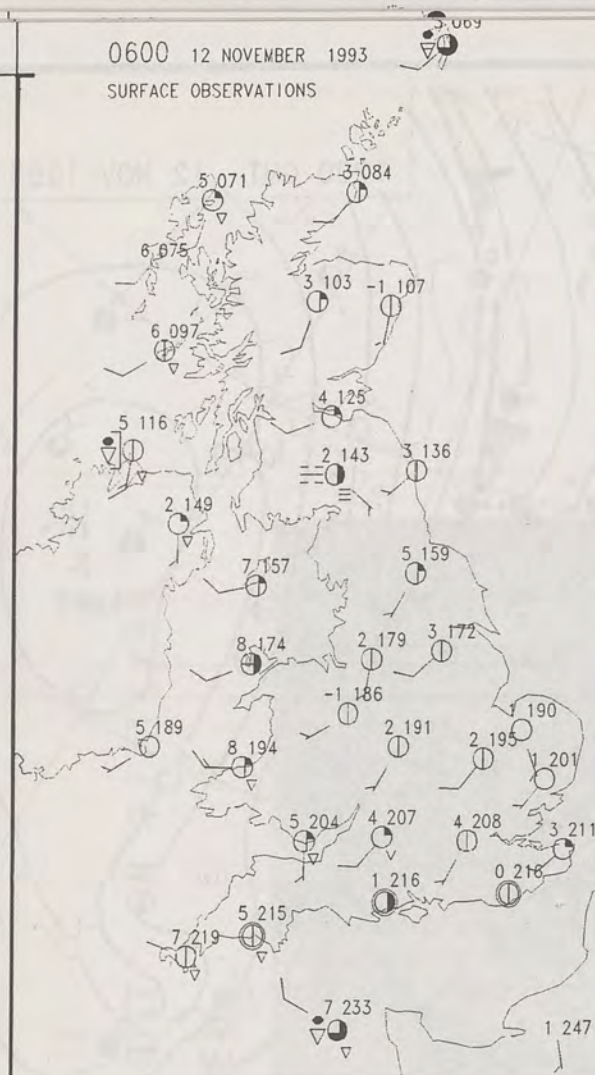 3 069
0600 12 NOVEMBER 1993
SURFACE OBSERVATIONS
5 071
-3 084
6 075
3 103
-1 107
6 097
4 125
5 116
2 143
3 136
2 149
7 157
5 159
8 174
2 179
3 172
-1 186
1 190
5 189
2 191
2 195
8 194
1 201
5 204
4 207
4 208
3 211
1 216
0 216
5 215
7 219
7 233
1 247